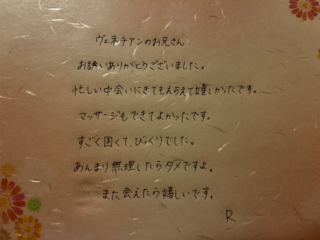 ヴェネチアンのお兄さん
お誘いありがとうございました。
忙しい中会いにきてもらえて嬉しかったです。
マッサージもできてよかったです。
すごく固くて、びっくりでした。
あんまり無理したらダメですよ。
また会えたら嬉しいです。
R